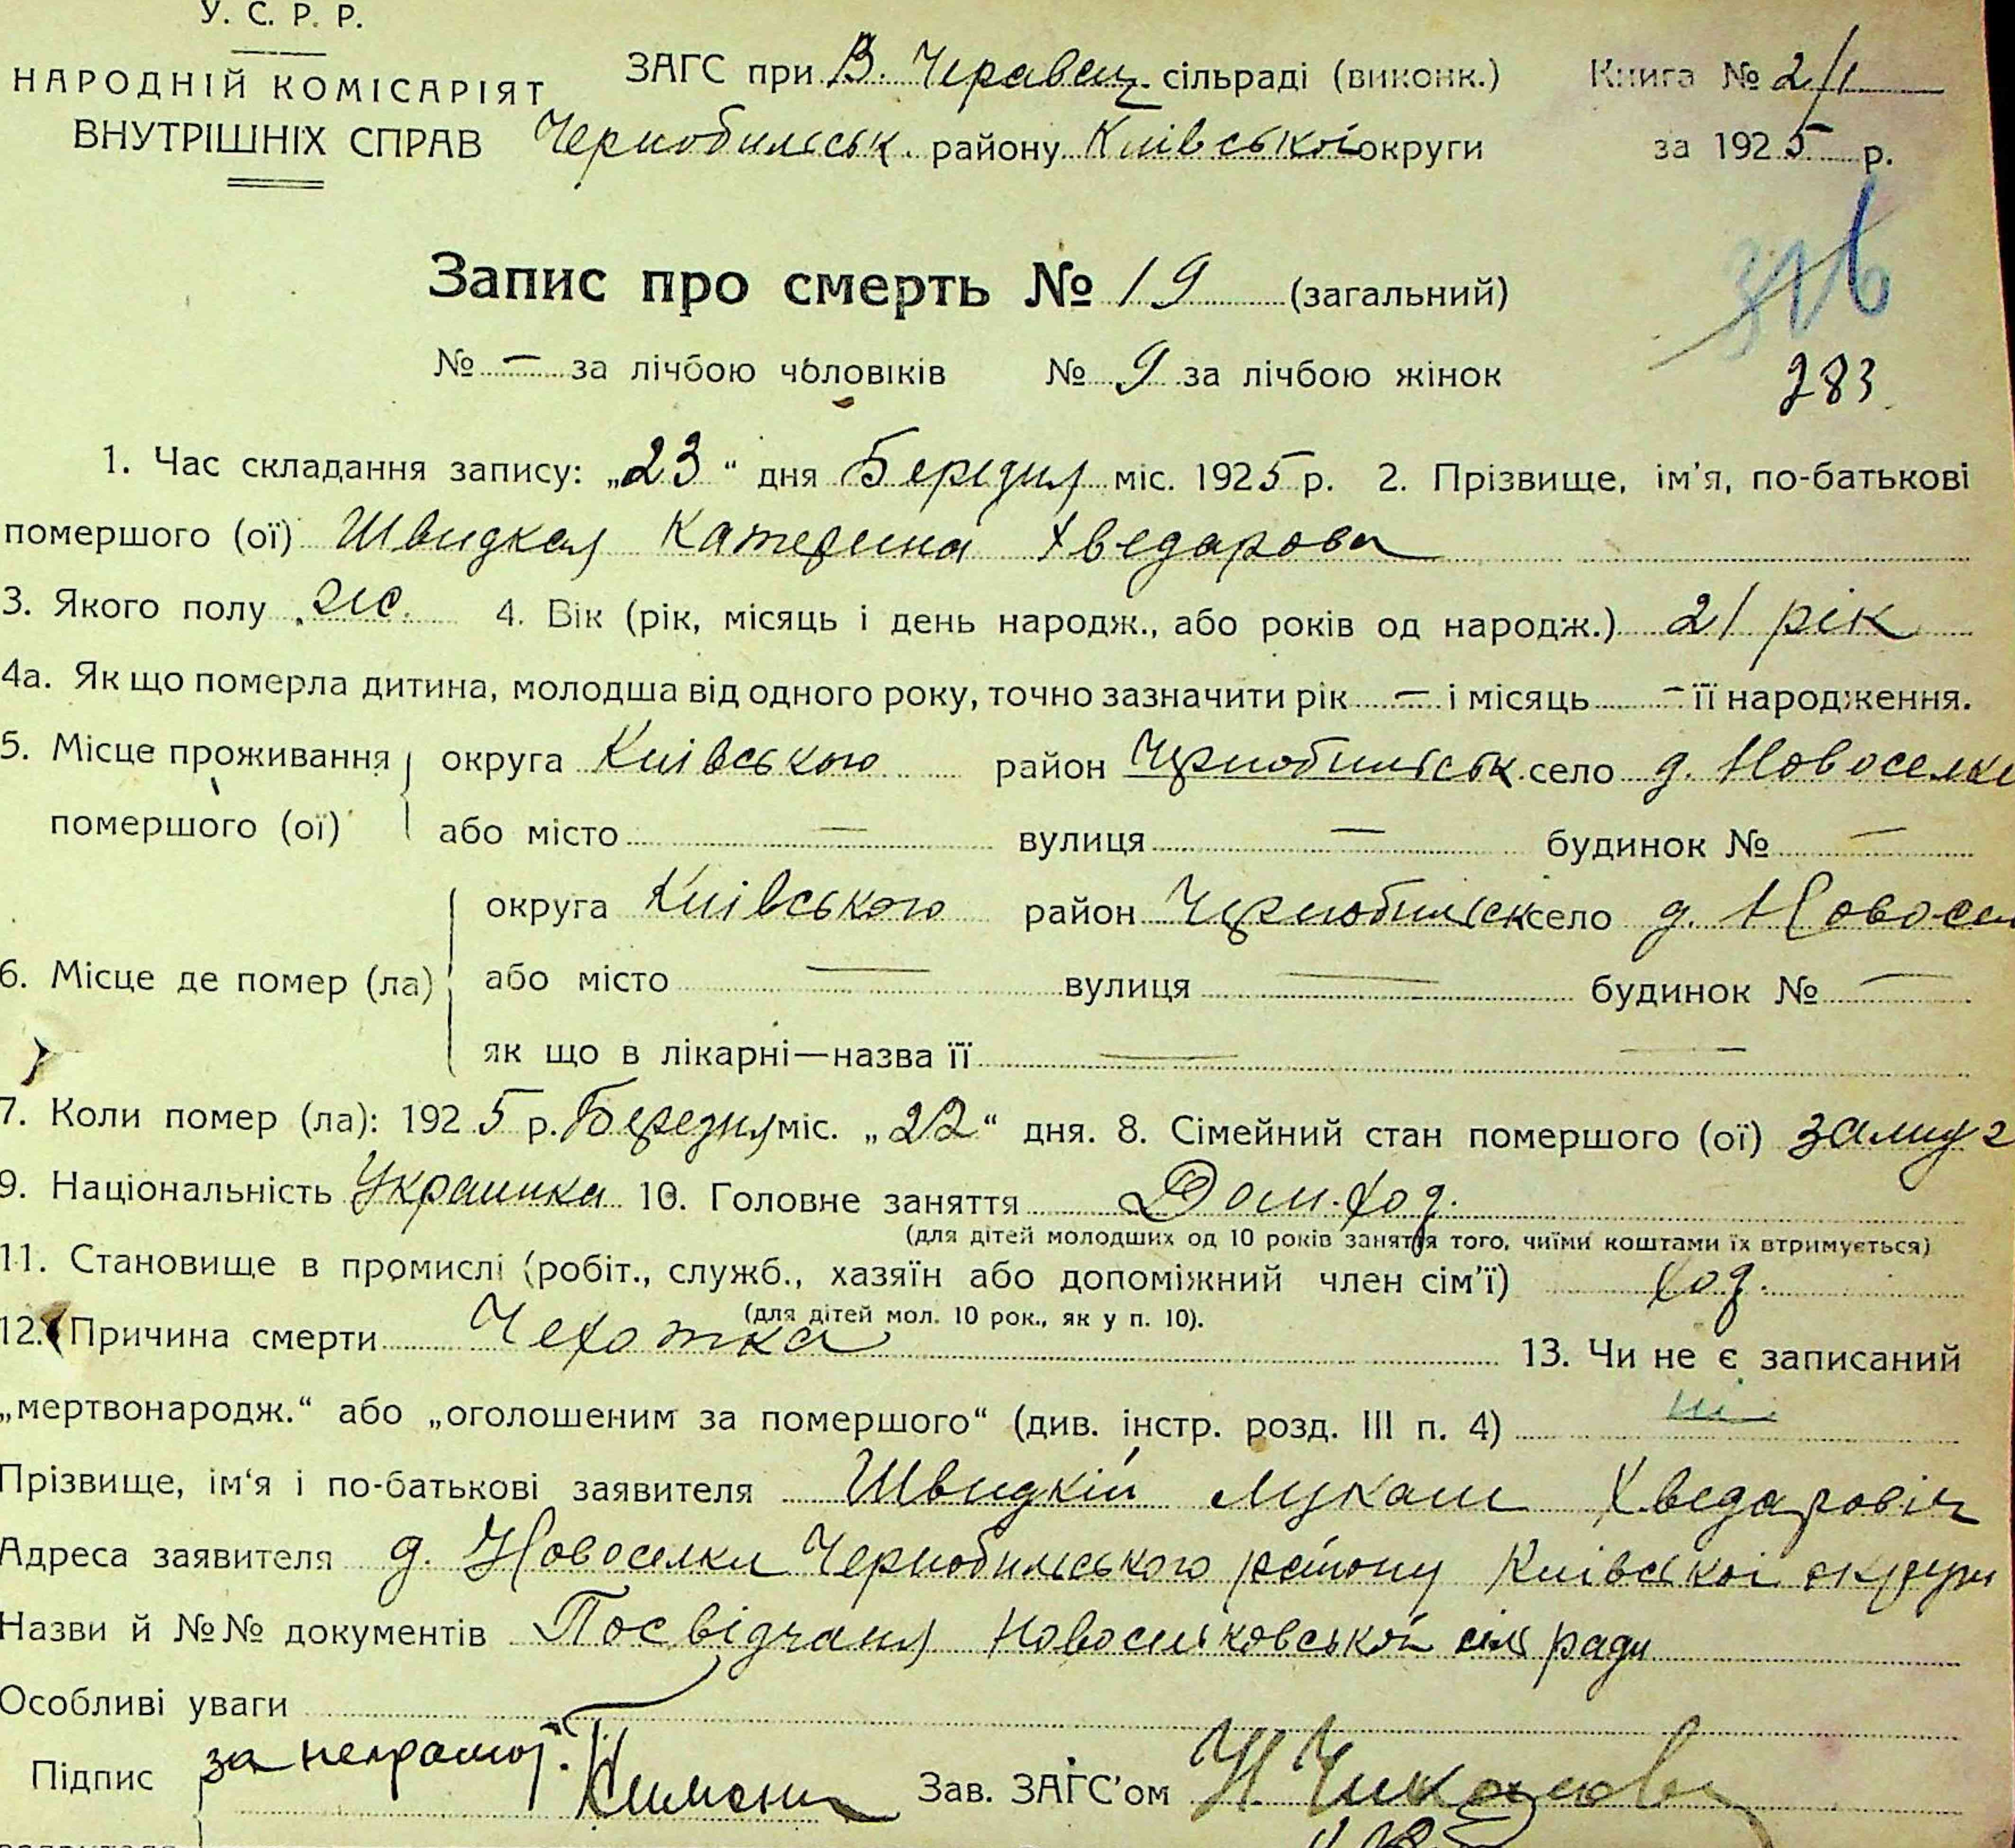 У. С. Р. Р.
НАРОДНІЙ КОМІСАРІЯТ
ВНУТРІШНІХ СПРАВ
ЗАГС при В. Черавец. сільраді (виконк.) Книга № 2/1
Чернобильськ. району Київської округи за 1925 р.
316
Запис про смерть № 19 (загальний)
№ — за лічбою чоловіків № 9 за лічбою жінок
283
1. Час складання запису: „23“ дня Березня міс. 1925 р. 2. Прізвище, ім'я, по-батькові
помершого (ої) Швидкая Катерина Хведарова
3. Якого полу жс. 4. Вік (рік, місяць і день народж., або років од народж.) 21 рік
4а. Як що померла дитина, молодша від одного року, точно зазначити рік — і місяць — її народження.
5. Місце проживання помершого (ої) округа Київського район Чернобильськ. село д. Новоселки
або місто — вулиця — будинок № —
6. Місце де помер (ла) округа Київського район Чернобильськ село д. Новосел
або місто — вулиця — будинок № —
як що в лікарні—назва її — —
7. Коли помер (ла): 1925 р. Березня міс. „22“ дня. 8. Сімейний стан помершого (ої) замуж
9. Національність Украинка 10. Головне заняття Дом. хоз.
(для дітей молодших од 10 років заняття того, чиїми коштами їх втримується)
11. Становище в промислі (робіт., служб., хазяїн або допоміжний член сім'ї) хоз.
(для дітей мол. 10 рок., як у п. 10).
12. Причина смерти Чехотка 13. Чи не є записаний
„мертвонародж.“ або „оголошеним за помершого“ (див. інстр. розд. III п. 4) ні
Прізвище, ім'я і по-батькові заявителя Швидкій Лукаш Хведаровіч
Адреса заявителя д. Новоселки Чернобильського району Київської округи
Назви й №№ документів Посвідчання Новосельковської сіль ради
Особливі уваги
Підпис за неграмот. Зав. ЗАГС'ом